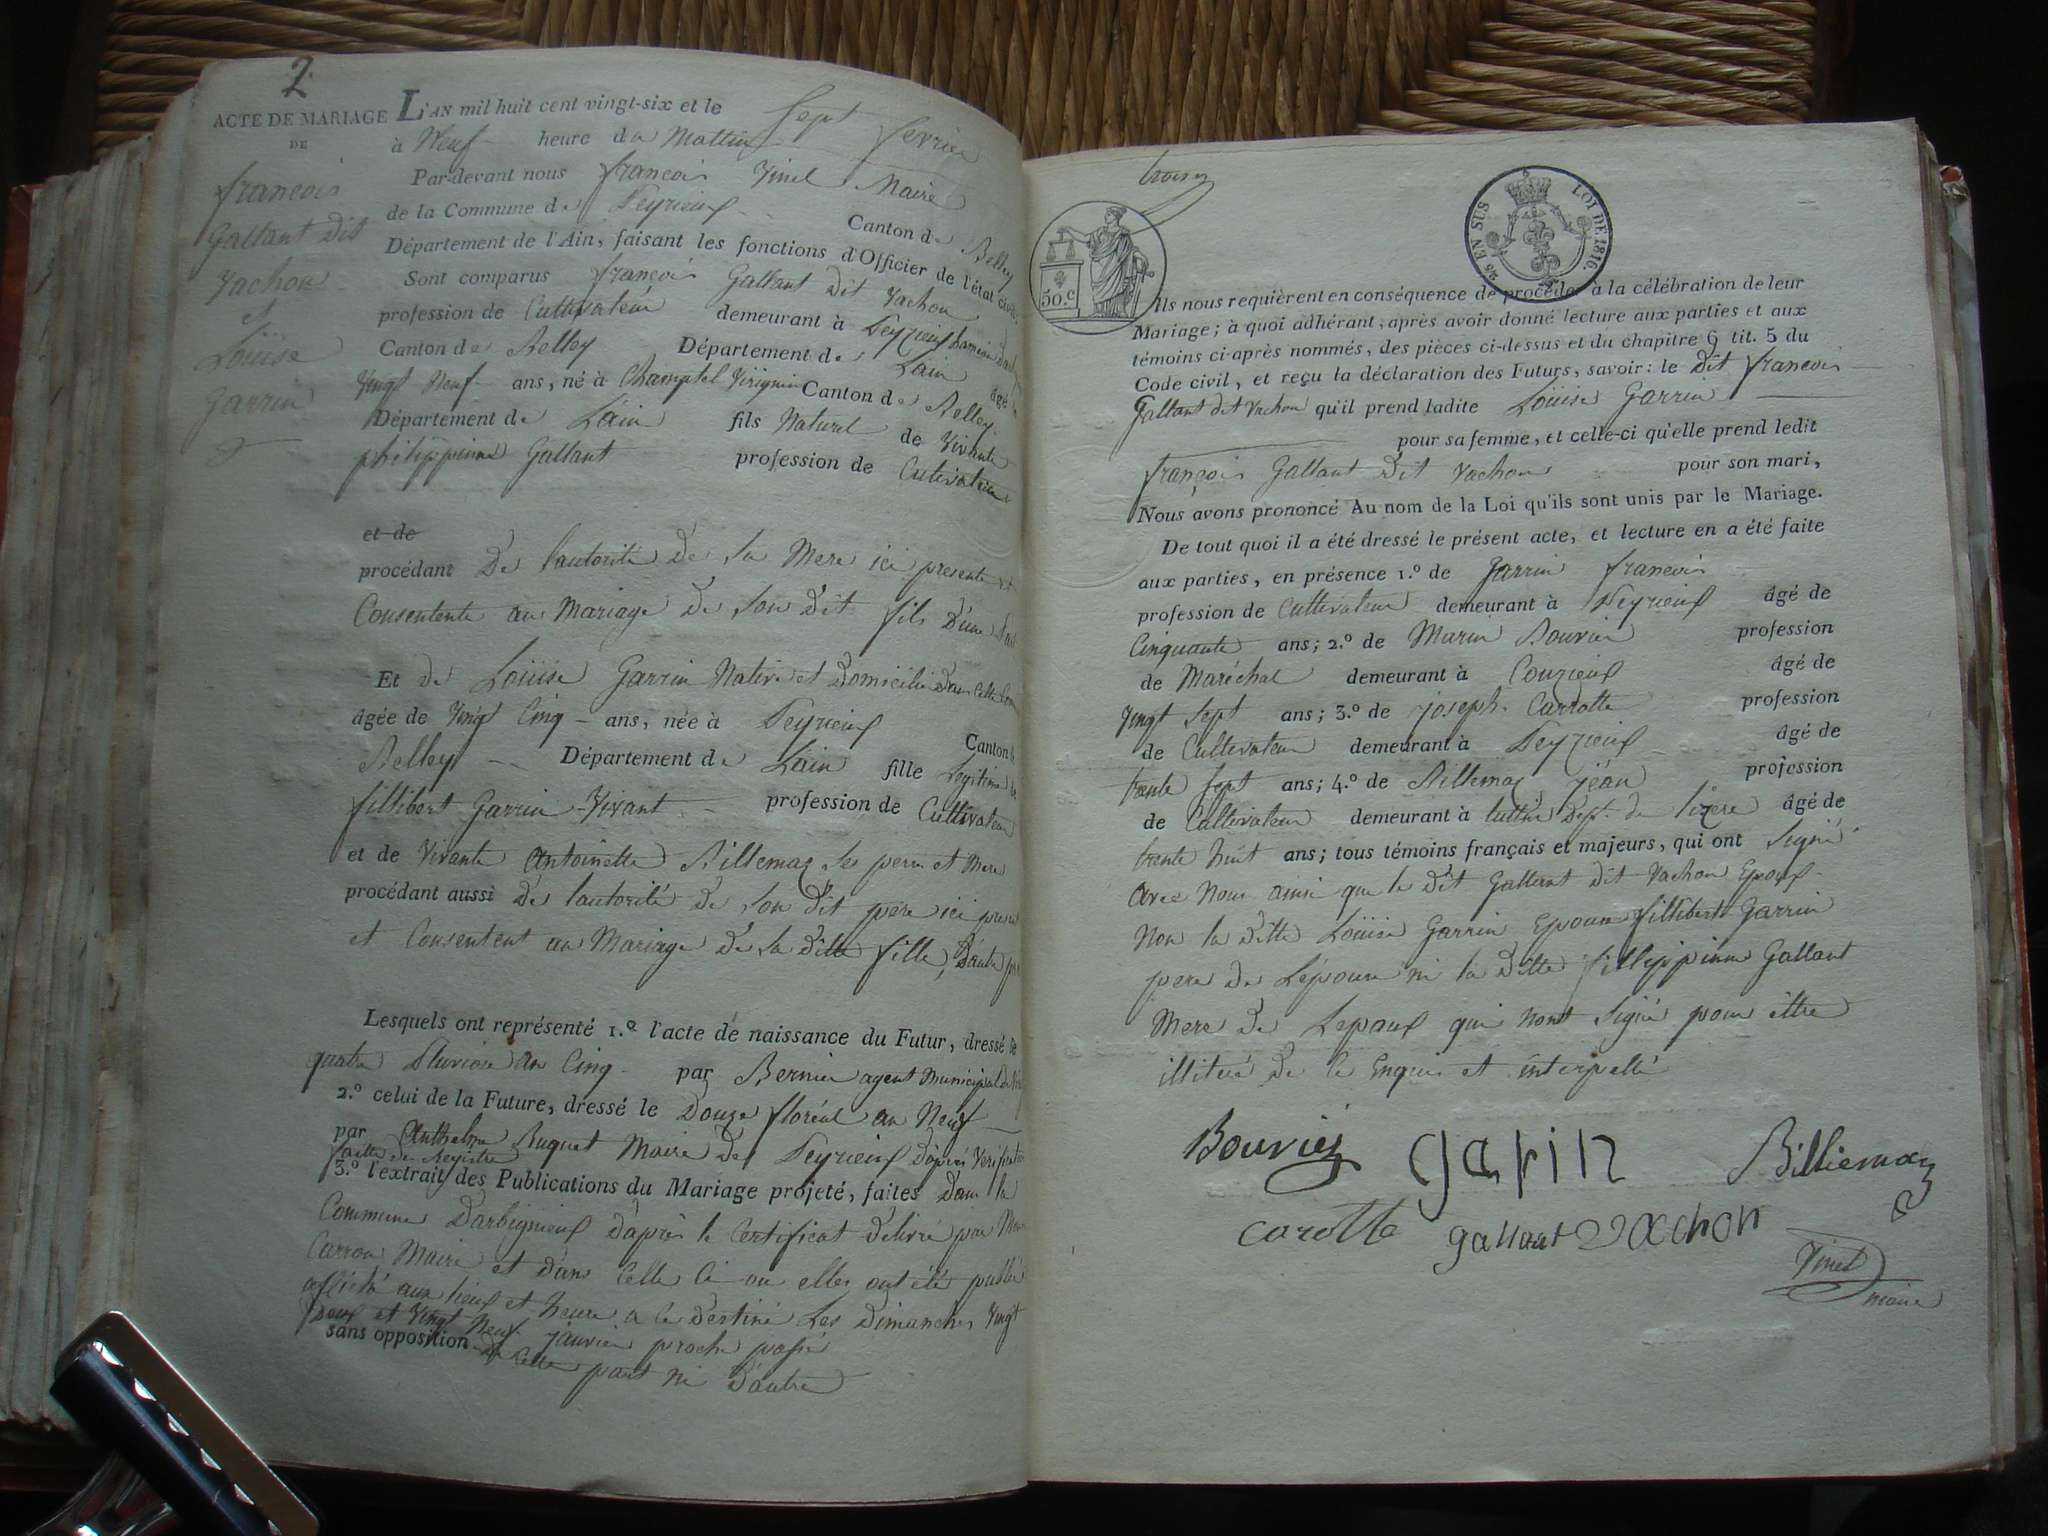 2.
ACTE DE MARIAGE
DE
francois
Gallant dit
Vachon
et
Loüise
Garrin
L'AN mil huit cent vingt-six et le Sept fevrier
à Neuf heure du Mattin
Par-devant nous francois Vinel Maire
de la Commune de Peyrieux Canton de Belley
Département de l'Ain, faisant les fonctions d'Officier de l'état civil,
Sont comparus francois Gallant dit Vachon
profession de Cultivateur demeurant à Peyrieux
Canton de Belley Département de Lain âgé
Vingt Neuf ans, né à Champtel Virignin Canton de Belley
Département de Lain fils Naturel de Vivante
philippinne Gallant profession de Cultivateur
et de
procédant De lautorité De Sa Mere ici presente et
Consentente au Mariage De Son Dit fils D'une
Et de Loüise Garrin Native et Domicilié Dans Cette
âgée de Vingt Cinq ans, née à Peyrieux Canton
Belley Département de Lain fille Legitime
fillibert Garrin Vivant profession de Cultivateur
et de Vivante Antoinette Billemaz Ses pere et Mere
procédant aussi De lautorité De Son Dit pere ici
et Consentent au Mariage De Sa Ditte fille, D'autre
Lesquels ont représenté 1.º l'acte de naissance du Futur, dressé le
quatre Pluviose an Cinq par Bernier agent Municipal
2.º celui de la Future, dressé le Douze floréal an Neuf
par Anthelme Buquet Maire de Peyrieux D'aprés Verification
faitte du Registre
3.º l'extrait des Publications du Mariage projeté, faites Dans la
Commune D'arbignieux D'après le Certificat Délivré par
Carron Maire et dans Celle Ci ou elles ont été publié
affiché aux lieux et heure a ce Destiné Les Dimanches Vingt
Deux et Vingt Neuf janvier proche passé
sans opposition de Cette part ni D'autre
trois
50.c
25 EN SUS LOI DE 1816.
Ils nous requièrent en conséquence de procéder à la célébration de leur
Mariage; à quoi adhérant, après avoir donné lecture aux parties et aux
témoins ci-après nommés, des pièces ci-dessus et du chapitre 6 tit. 5 du
Code civil, et reçu la déclaration des Futurs, savoir: le dit francois
Gallant dit Vachon qu'il prend ladite Loüise Garrin
pour sa femme, et celle-ci qu'elle prend ledit
françois Gallant Dit Vachon pour son mari,
Nous avons prononcé Au nom de la Loi qu'ils sont unis par le Mariage.
De tout quoi il a été dressé le présent acte, et lecture en a été faite
aux parties, en présence 1.º de Garrin francois
profession de Cultivateur demeurant à Peyrieux âgé de
Cinquante ans; 2.º de Marin Bouvier profession
de Maréchal demeurant à Couzieux âgé de
Vingt Sept ans; 3.º de joseph Carrotte profession
de Cultivateur demeurant à Peyrieux âgé de
trente Sept ans; 4.º de Billemaz jean profession
de Cultivateur demeurant à Dept. de Lizere âgé de
trente huit ans; tous témoins français et majeurs, qui ont Signé
avec Nous ainsi que le Dit Gallant dit Vachon Epoux
Non la Ditte Loüise Garrin Epouse fillibert Garrin
pere de Lepouse ni la Ditte fillippinne Gallant
Mere de Lepoux qui nont Signé pour ettre
illiteré De Ce Enquis et interpellé
Bouvier garin Billiemaz
carotte gallant Vachon
Vinel
maire